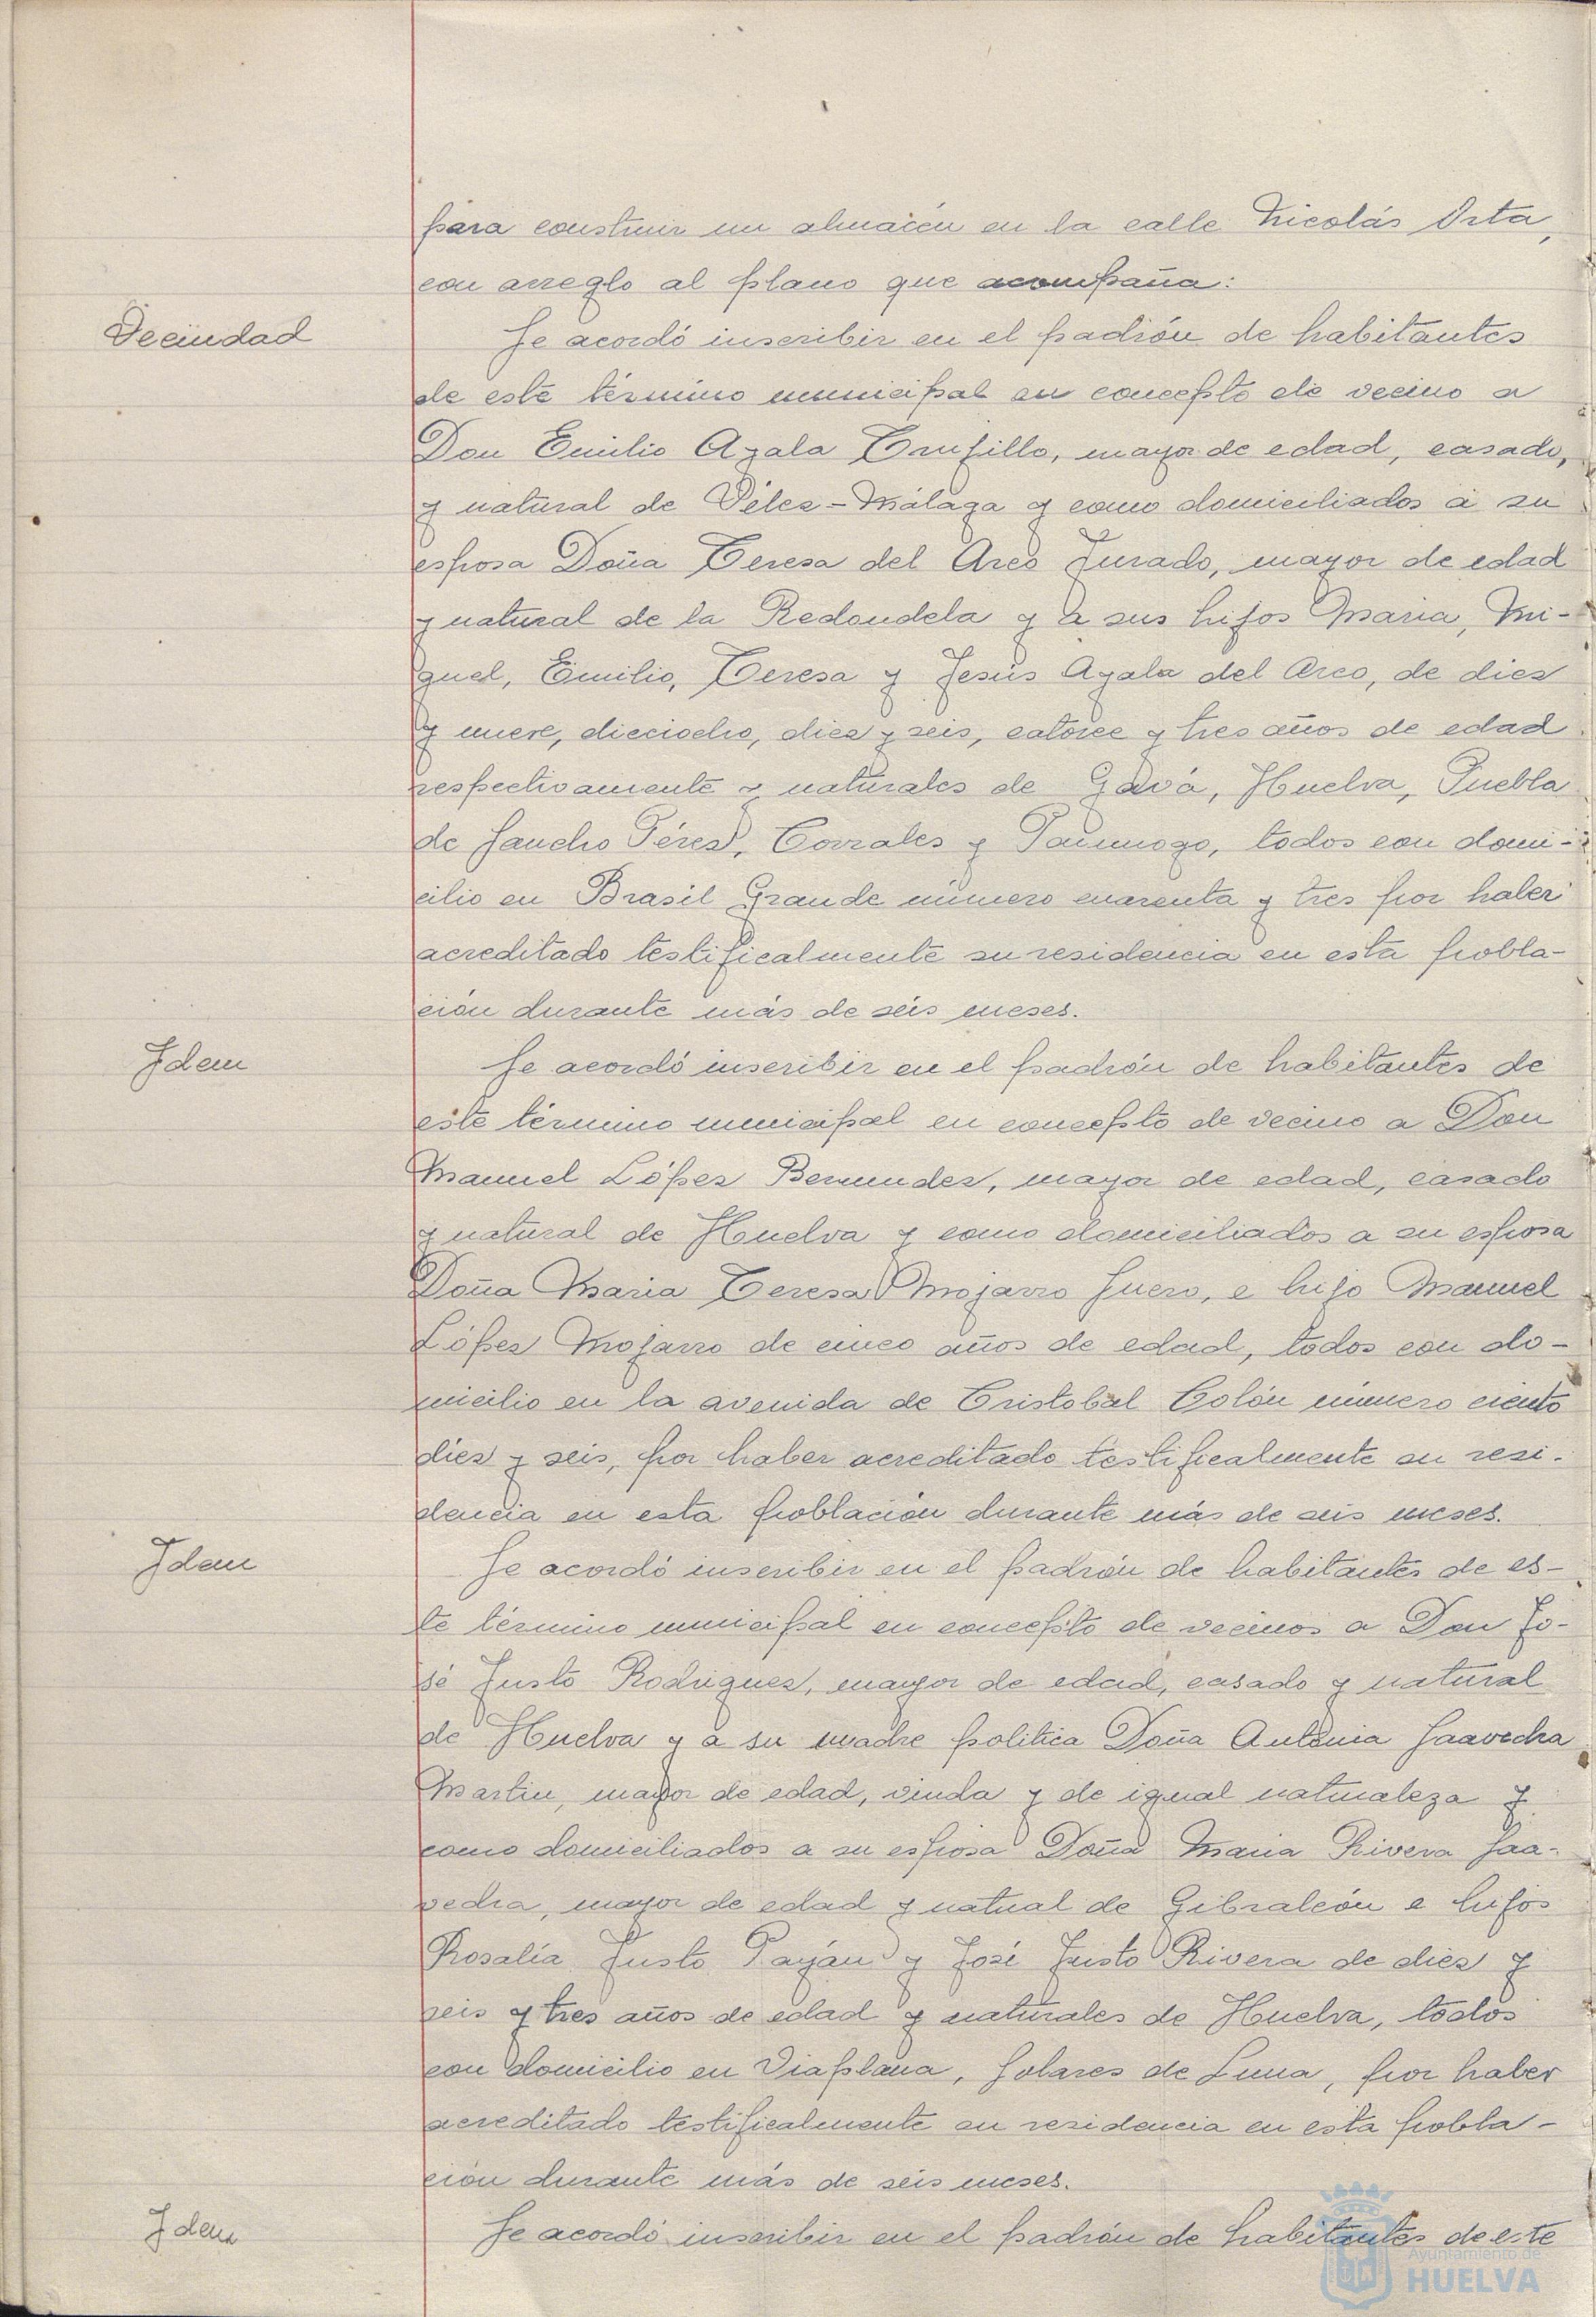 para construir un almacén en la calle Nicolás Orta,
con arreglo al plano que acompaña:
Vecindad
Se acordó inscribir en el padrón de habitantes
de este término municipal en concepto de vecino a
Don Emilio Ayala Trujillo, mayor de edad, casado,
y natural de Vélez-Málaga y como domiciliados a su
esposa Doña Teresa del Arco Jurado, mayor de edad
y natural de la Redondela y a sus hijos Maria, Mi-
guel, Emilio, Teresa y Jesús Ayala del Arco, de diez
y nueve, dieciocho, diez y seis, catorce y tres años de edad
respectivamente y naturales de Gavá, Huelva, Puebla
de Sancho Pérez, Corrales y Paimogo, todos con domi-
cilio en Brasil Grande número cuarenta y tres por haber
acreditado testificalmente su residencia en esta pobla-
ción durante más de séis meses.
Idem
Se acordó inscribir en el padrón de habitantes de
este término municipal en concepto de vecino a Don
Manuel López Bermudez, mayor de edad, casado
y natural de Huelva y como domiciliados a su esposa
Doña Maria Teresa Mojarro Suero, e hijo Manuel
López Mojarro de cinco años de edad, todos con do-
micilio en la avenida de Cristobal Colón número ciento
diez y seis, por haber acreditado testificalmente su resi-
dencia en esta población durante más de seis meses.
Idem
Se acordó inscribir en el padrón de habitantes de es-
te término municipal en concepto de vecinos a Don Jo-
sé Justo Rodriguez, mayor de edad, casado y natural
de Huelva y a su madre politica Doña Antonia Saavedra
Martin, mayor de edad, viuda y de igual naturaleza y
como domiciliados a su esposa Doña Maria Rivera Saa-
vedra, mayor de edad y natual de Gibraleón e hijos
Rosalía Justo Payán y José Justo Rivera de diez y
seis y tres años de edad y naturales de Huelva, todos
con domicilio en Viaplana, Solares de Luna, por haber
acreditado testificalmente su residencia en esta pobla-
ción durante más de séis meses.
Idem
Se acordó inscribir en el padrón de habitantes de este
Ayuntamiento de
HUELVA